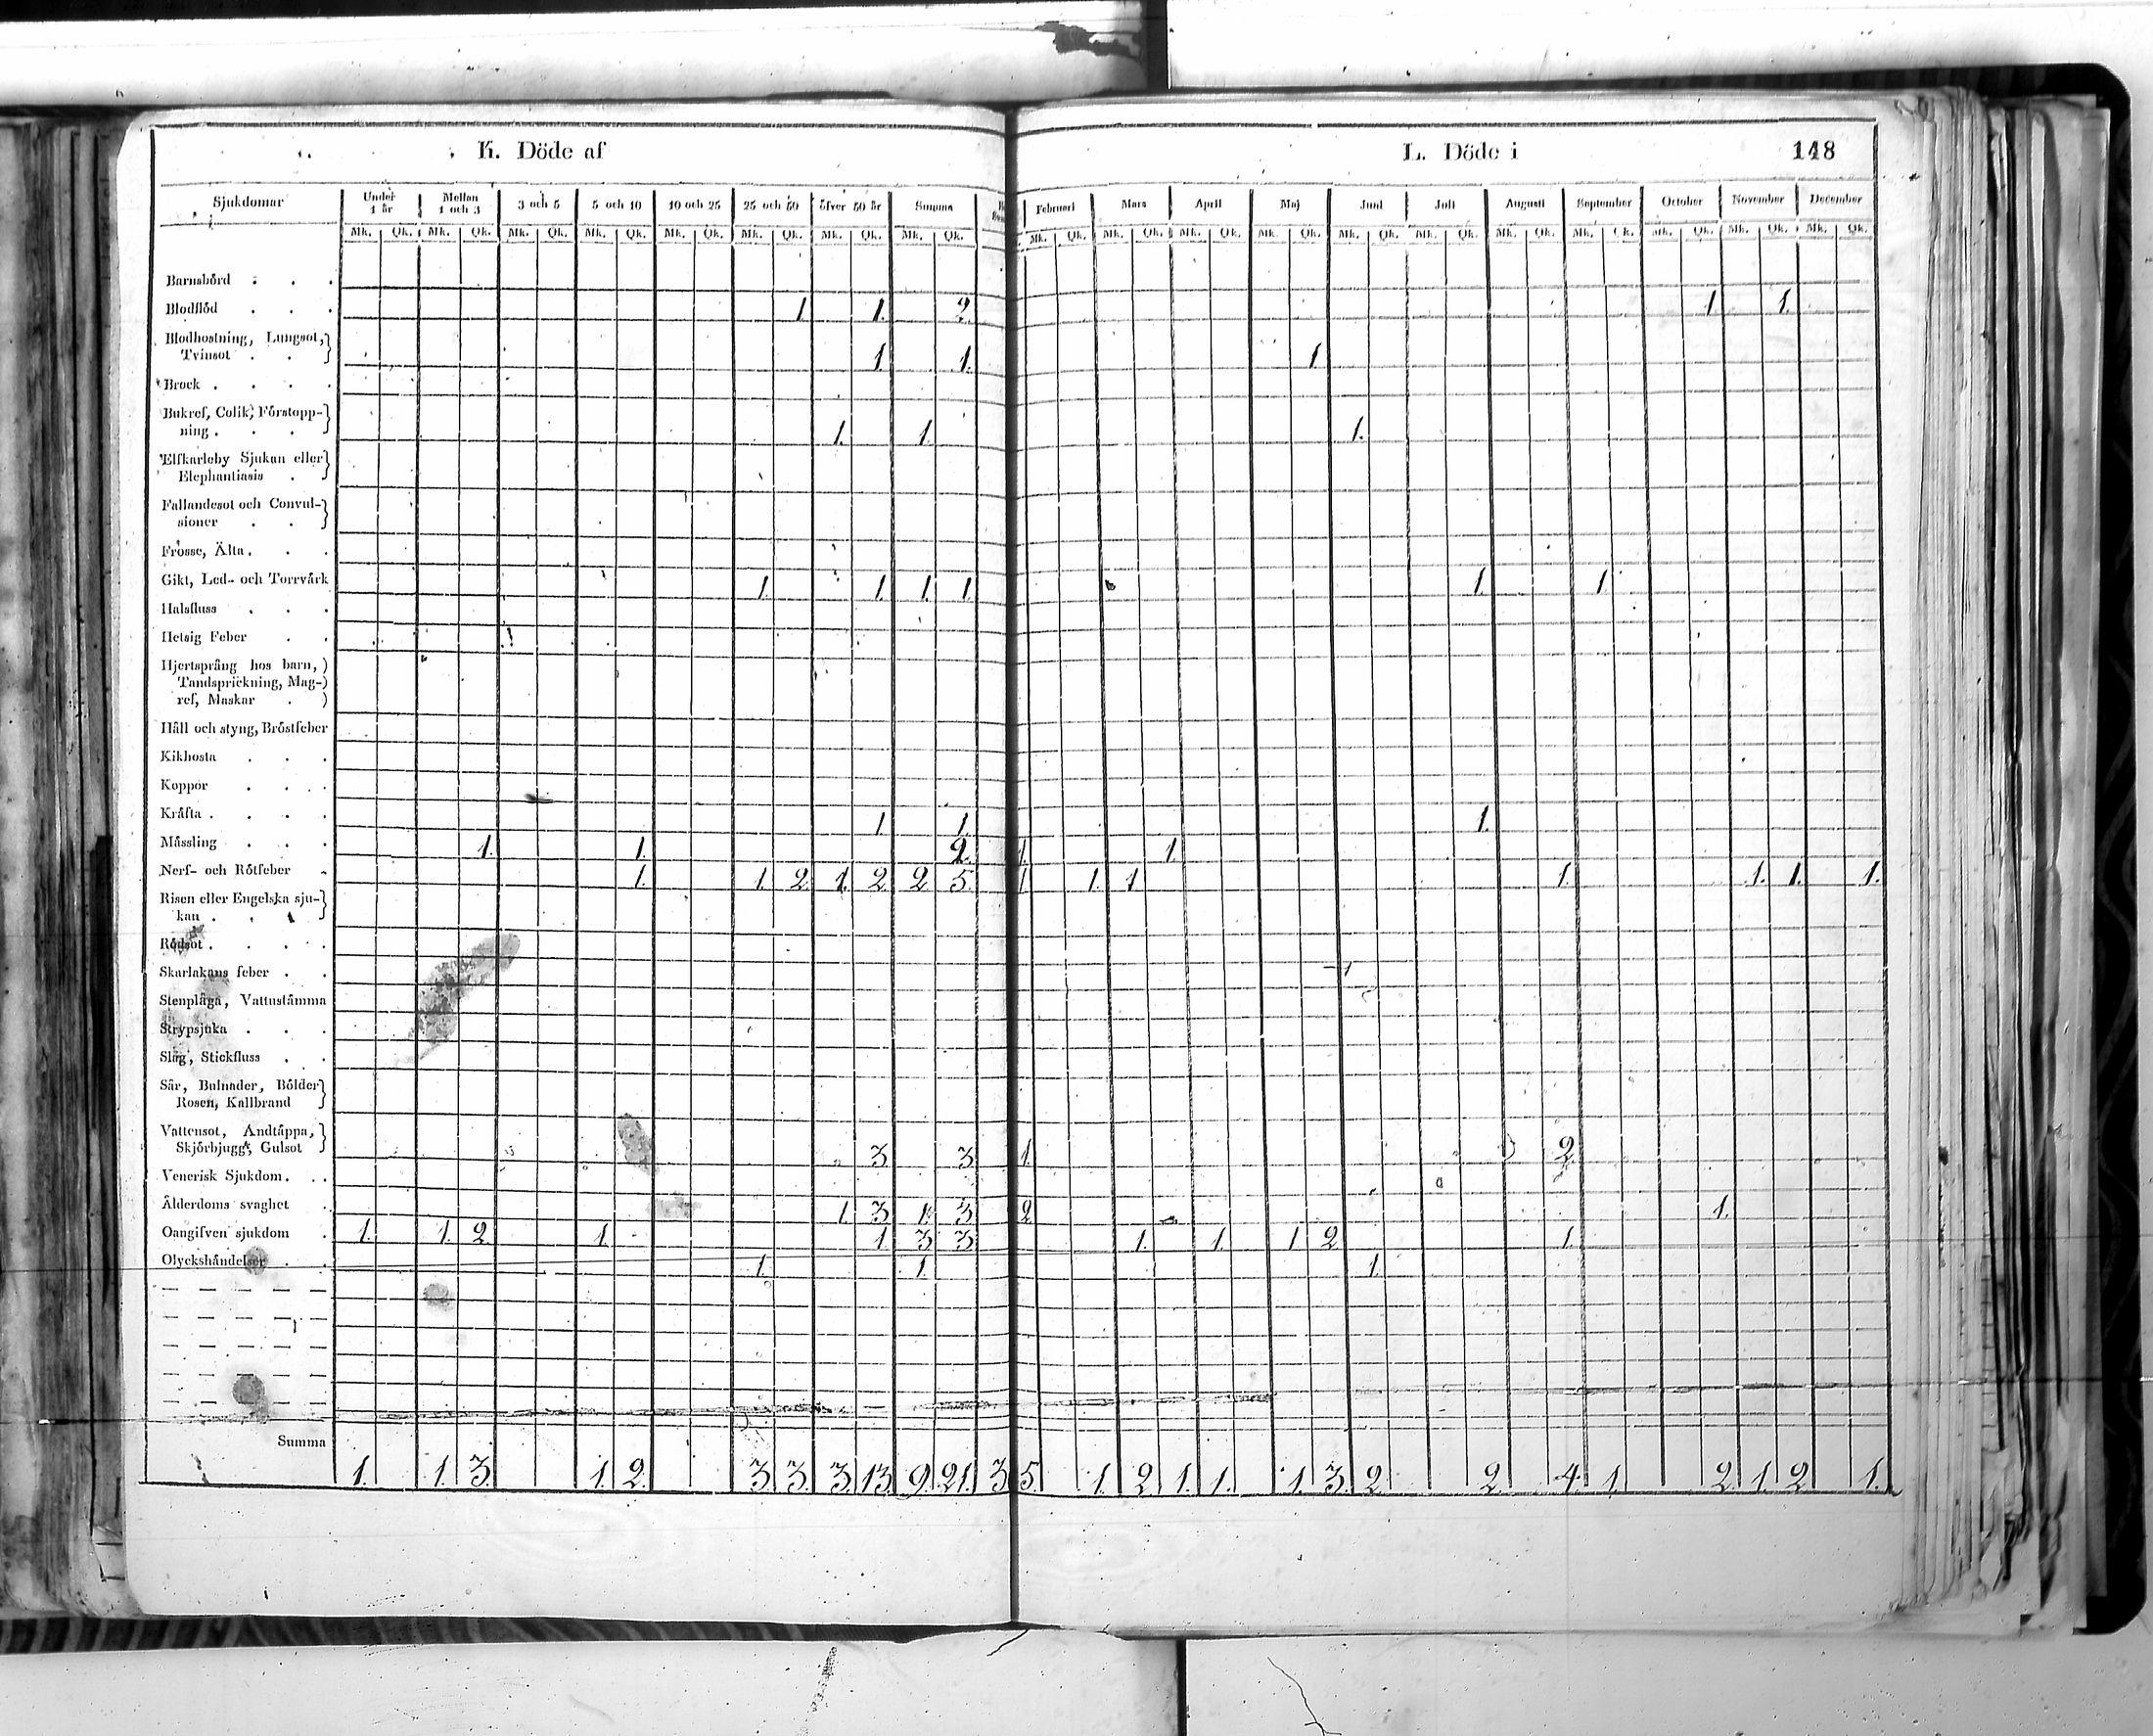 K. Döde af
L. Döde i 148
Sjukdomar Under 1 år Mellan 1 och 3 3 och 5 5 och 10 10 och 25 25 och 50 öfver 50 år Summa Februari Mars April Maj Juni Juli Augusti September October November December
Mk. Qk. Mk. Qk. Mk. Qk. Mk. Qk. Mk. Qk. Mk. Qk. Mk. Qk. Mk. Qk. Mk. Qk. Mk. Qk. Mk. Qk. Mk. Qk. Mk. Qk. Mk. Qk. Mk. Qk. Mk. Qk. Mk. Qk. Mk. Qk. Mk. Qk.
Barnsbörd . . .
Blodflöd . . . 1 1. 2. 1 1.
Blodhostning, Lungsot,
Tvinsot . . 1. 1. 1.
Brock . . . .
Bukref, Colik, Förstopp-
ning . . . 1. 1. 1.
Elfkarleby Sjukan eller
Elephantiasis .
Fallandesot och Convul-
sioner . .
Frosse, Älta . . .
Gikt, Led- och Torrvärk 1. 1. 1. 1. 1. 1.
Halsfluss . . .
Hetsig Feber . .
Hjertsprång hos barn,
Tandsprickning, Mag-
ref, Maskar .
Håll och styng, Bröstfeber
Kikhosta . . .
Koppor . . .
Kräfta . . . . 1 1. 1.
Mässling . . . 1. 1. 2. 1. 1.
Nerf- och Rötfeber . 1. 1. 2. 1. 2 2 5. 1 1. 1 1. 1. 1. 1.
Risen eller Engelska sju-
kan . . .
Rödsot . . . .
Skarlakans feber . .
Stenplåga, Vattustämma
Strypsjuka . . .
Slag, Stickfluss . .
Sår, Bulnader, Bölder
Rosen, Kallbrand
Vattensot, Andtäppa,
Skjörbjugg, Gulsot 3. 3. 1. 2.
Venerisk Sjukdom . . .
Ålderdoms svaghet . 1. 3. 1. 3. 2. 1.
Oangifven sjukdom . 1. 1. 2. 1. 1 3 3. 1. 1. 1 2. 1.
Olyckshändelser . . 1. 1. 1.
Summa
1. 1. 3. 1. 2. 3. 3. 3. 13. 9. 21. 3 5. 1. 2. 1. 1. 1. 3. 2. 2. 4. 1. 2. 1. 2. 1.